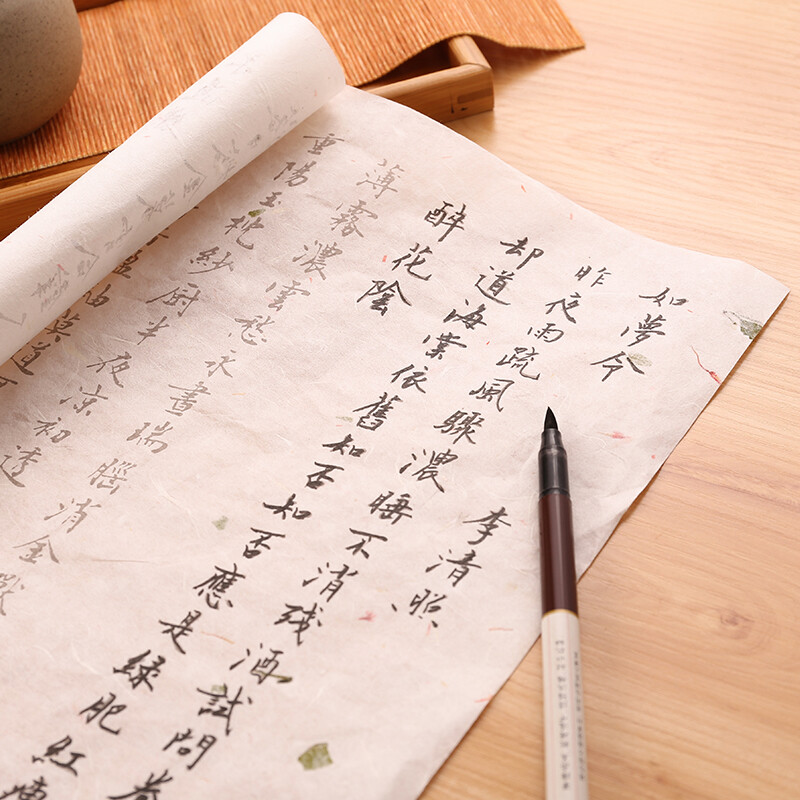 如夢令 李清照
昨夜雨疏風驟濃睡不消殘酒試問卷
却道海棠依舊知否知否應是綠肥紅瘦
醉花陰
薄霧濃雲愁永晝瑞腦消金獸
重陽玉枕紗厨半夜凉初透
盈袖莫道